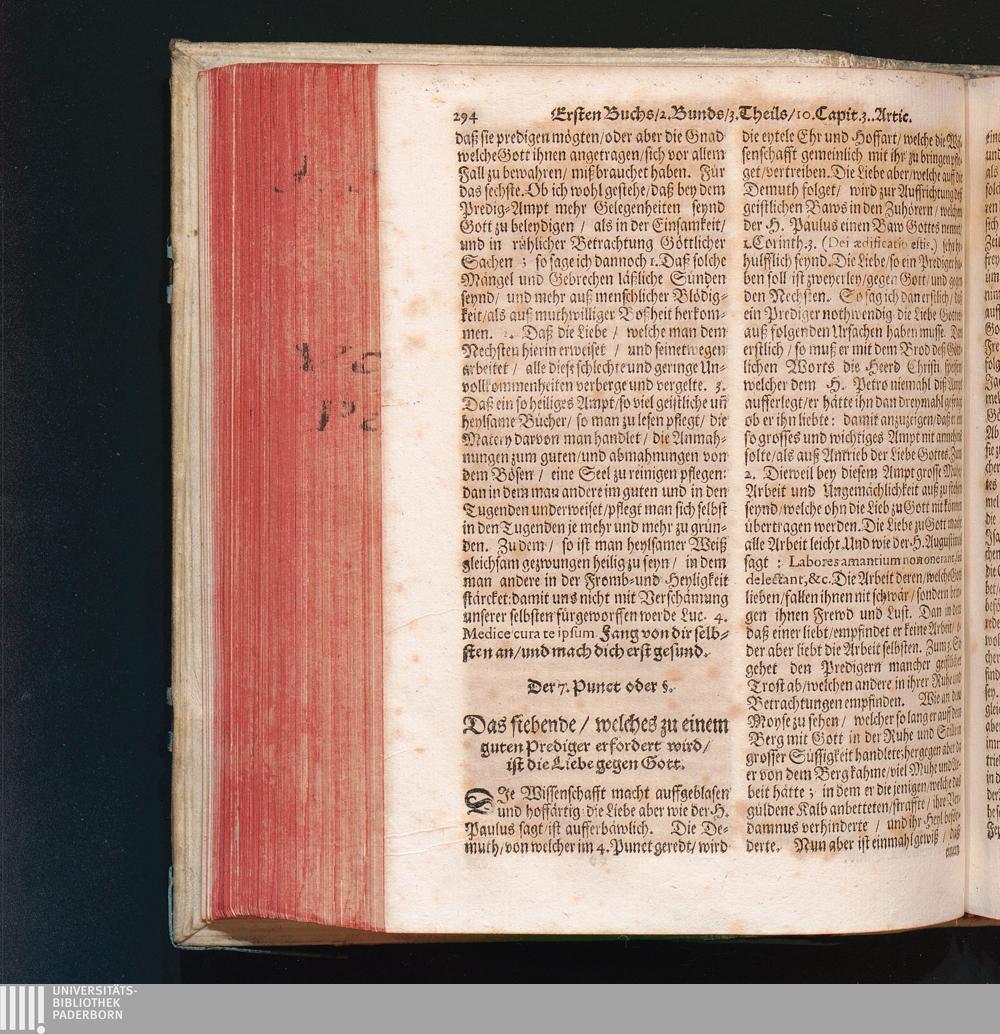 294 Ersten Buchs/2. Bunds/3. Theils/10. Capit. 3. Artic.
daß sie predigen mögten/oder aber die Gnad
welche Gott ihnen angetragen/sich vor allem
Fall zu bewahren/ mißbrauchet haben. Für
das sechste. Ob ich wohl gestehe/daß bey dem
Predig-Ampt mehr Gelegenheiten seynd
Gott zu beleydigen / als in der Einsamkeit/
und in rühlicher Betrachtung Göttlicher
Sachen ; so sage ich dannoch 1. Daß solche
Mängel und Gebrechen läßliche Sünden
seynd/ und mehr auß menschlicher Blödig-
keit/als auß muthwilliger Boßheit herkom-
men. 2. Daß die Liebe / welche man dem
Nechsten hierin erweiset / und seinetwegen
arbeitet / alle diese schlechte und geringe Un-
vollkommenheiten verberge und vergelte. 3.
Daß ein so heiliges Ampt/so viel geistliche uñ
heylsame Bücher/ so man zu lesen pflegt/ die
Matery darvon man handlet / die Anmah-
nungen zum guten/und abmahnungen von
dem Bösen / eine Seel zu reinigen pflegen:
dan in dem man andere im guten und in den
Tugenden underweiset/pflegt man sich selbst
in den Tugenden je mehr und mehr zu grün-
den. Zu dem / so ist man heylsamer Weiß
gleichsam gezwungen heilig zu seyn/ in dem
man andere in der Fromb-und Heyligkeit
stärcket: damit uns nicht mit Verschämung
unserer selbsten fürgeworffen werde Luc. 4.
Medice cura te ipsum. Fang von dir selb-
sten an/und mach dich erst gesund.
Der 7. Punct oder §.
Das siebende / welches zu einem
guten Prediger erfordert wird/
ist die Liebe gegen Gott.
DJe Wissenschafft macht auffgeblasen
und hoffärtig: die Liebe aber wie der H.
Paulus sagt/ist aufferbäwlich. Die De-
muth/von welcher im 4. Punct geredt/wird
die eytele Ehr und Hoffart/welche die
senschafft gemeinlich mit ihr zu bringen
get/vertreiben. Die Liebe aber/welche auff die
Demuth folget/ wird zur Auffrichtung deß
geistlichen Baws in den Zuhörern/welchen
der H. Paulus einen Baw Gottes nennet
1. Corinth. 3. (Dei ædificatio estis.)
hülfflich seynd. Die Liebe/so ein Prediger
ben soll ist zweyerley/gegen Gott/und gegen
den Nechsten. So sag ich dan erstlich/ daß
ein Prediger nothwendig die Liebe Gottes
auß folgenden Ursachen haben musse.
erstlich / so muß er mit dem Brod deß
lichen Worts die Heerd Christi speisen
welcher dem H. Petro niemahl diß Ampt
aufferlegt/er hätte ihn dan dreymahl gefragt
ob er ihn liebte: damit anzuzeigen/daß er ein
so grosses und wichtiges Ampt nit annehmen
solte/als auß Antrieb der Liebe Gottes. Zum
2. Dieweil bey diesem Ampt grosse
Arbeit und Ungemächlichkeit auß zu stehen
seynd/welche ohn die Lieb zu Gott nit können
übertragen werden. Die Liebe zu Gott macht
alle Arbeit leicht. Und wie der H. Augustinus
sagt : Labores amantium non onerant,
delectant, &c. Die Arbeit deren/welche Gott
lieben/fallen ihnen nit schwär/sondern brin-
gen ihnen Frewd und Lust. Dan in dem
daß einer liebt/empfindet er keine Arbeit/
der aber liebt die Arbeit selbsten. Zum 3.
gehet den Predigern mancher geistlicher
Trost ab/welchen andere in ihrer Ruhe und
Betrachtungen empfinden. Wie an dem
Moyse zu sehen / welcher so lang er auff dem
Berg mit Gott in der Ruhe und
grosser Süssigkeit handlete: hergegen aber da
er von dem Berg kahme/viel Mühe und Ar-
beit hätte ; in dem er die jenigen/welche das
güldene Kalb anbetteten/straffte / ihre Ver-
damnus verhinderte / und ihr Heyl beför-
derte. Nun aber ist einmahl gewiß / daß
UNIVERSITÄTS-
BIBLIOTHEK
PADERBORN